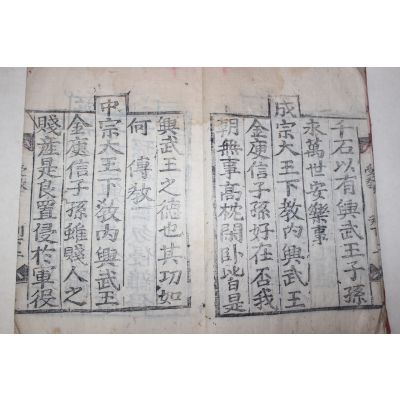 千石以有興武王子孫
永萬世安樂事
成宗大王下教內興武王
金庾信子孫好在否我
朝無事高枕閑臥皆是
興武王之德也其功如
何 傳教
中宗大王下教內興武王
金庾信子孫雖賤人之
賤產是良置侵於軍役